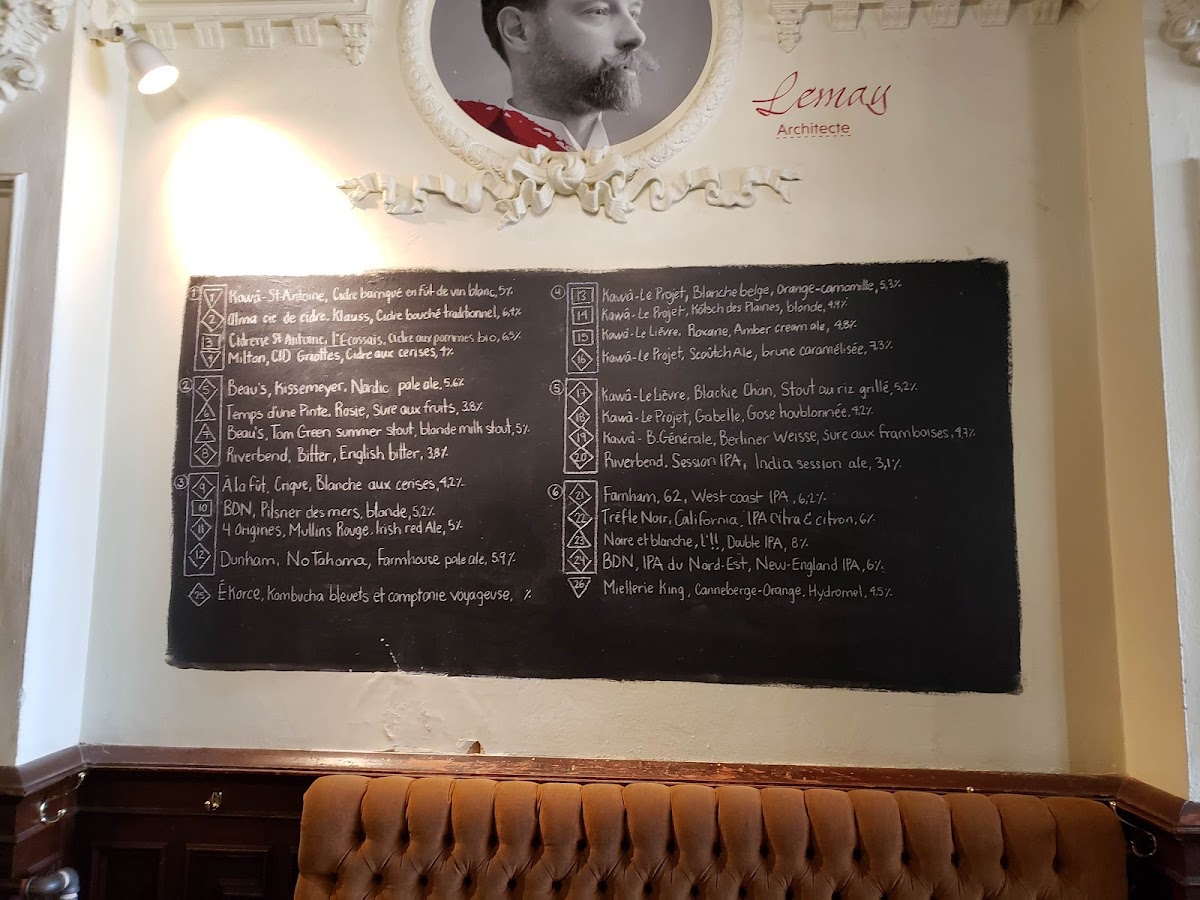 Lemay
Architecte
1
1 Kawâ-St-Antoine, Cidre barriqué en fût de vin blanc, 5%
2 Alma cie de cidre. Klauss, Cidre bouché traditionnel, 6,4%
3 Cidrerie St Antoine, L'Écossais, Cidre aux pommes bio, 6,5%
4 Milton, CID Griottes, Cidre aux cerises, 4%
2
5 Beau's, Kissemeyer. Nordic pale ale, 5.6%
6 Temps d'une Pinte, Rosie, Sure aux fruits, 3.8%
7 Beau's, Tom Green summer stout, blonde milk stout, 5%
8 Riverbend, Bitter, English bitter, 3,8%
3
9 À la fût, Crique, Blanche aux cerises, 4,2%
10 BDN, Pilsner des mers, blonde, 5,2%
11 4 Origines, Mullins Rouge, Irish red Ale, 5%
12 Dunham, No Tahoma, Farmhouse pale ale, 5.9%
25 Ékorce, Kombucha bleuets et comptonie voyageuse, %
4
13 Kawâ-Le Projet, Blanche belge, Orange-camomille, 5,3%
14 Kawâ-Le Projet, Kölsch des Plaines, blonde, 4,9%
15 Kawâ-Le Lièvre, Roxane, Amber cream ale, 4,8%
16 Kawâ-Le Projet, Scoûtch Ale, brune caramélisée, 7.3%
5
17 Kawâ-Le Lièvre, Blackie Chan, Stout au riz grillé, 5,2%
18 Kawâ-Le Projet, Gabelle, Gose houblonnée, 4,2%
19 Kawâ-B.Générale, Berliner Weisse, Sure aux framboises, 4,7%
20 Riverbend, Session IPA, India session ale, 3,1%
6
21 Farnham, 62, West coast IPA, 6,2%
22 Trèfle Noir, California, IPA Citra & citron, 6%
23 Noire et blanche, L'!!, Double IPA, 8%
24 BDN, IPA du Nord-Est, New-England IPA, 6%
26 Miellerie King, Canneberge-Orange, Hydromel, 4.5%